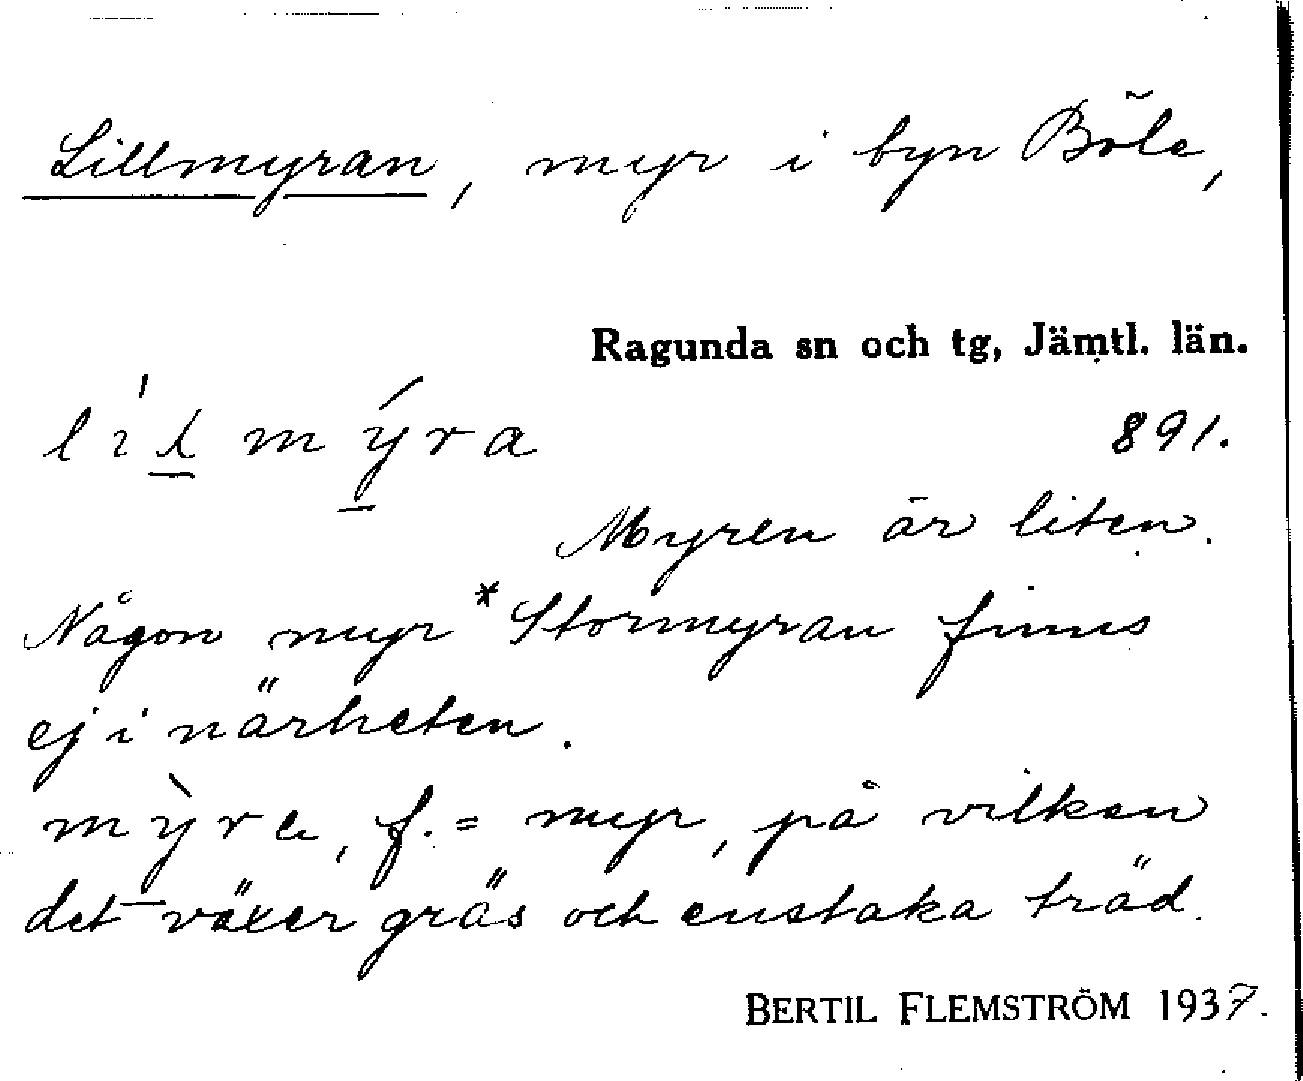 Lillmyran, myr i byn Böle,
Ragunda sn och tg, Jämtl. län.
lìlmýra
891.
Myren är liten.
Någon myr *Stormyran finns
ej i närheten.
mỳra, f. = myr, på vilken
det växer gräs och enstaka träd.
BERTIL FLEMSTRÖM 1937.